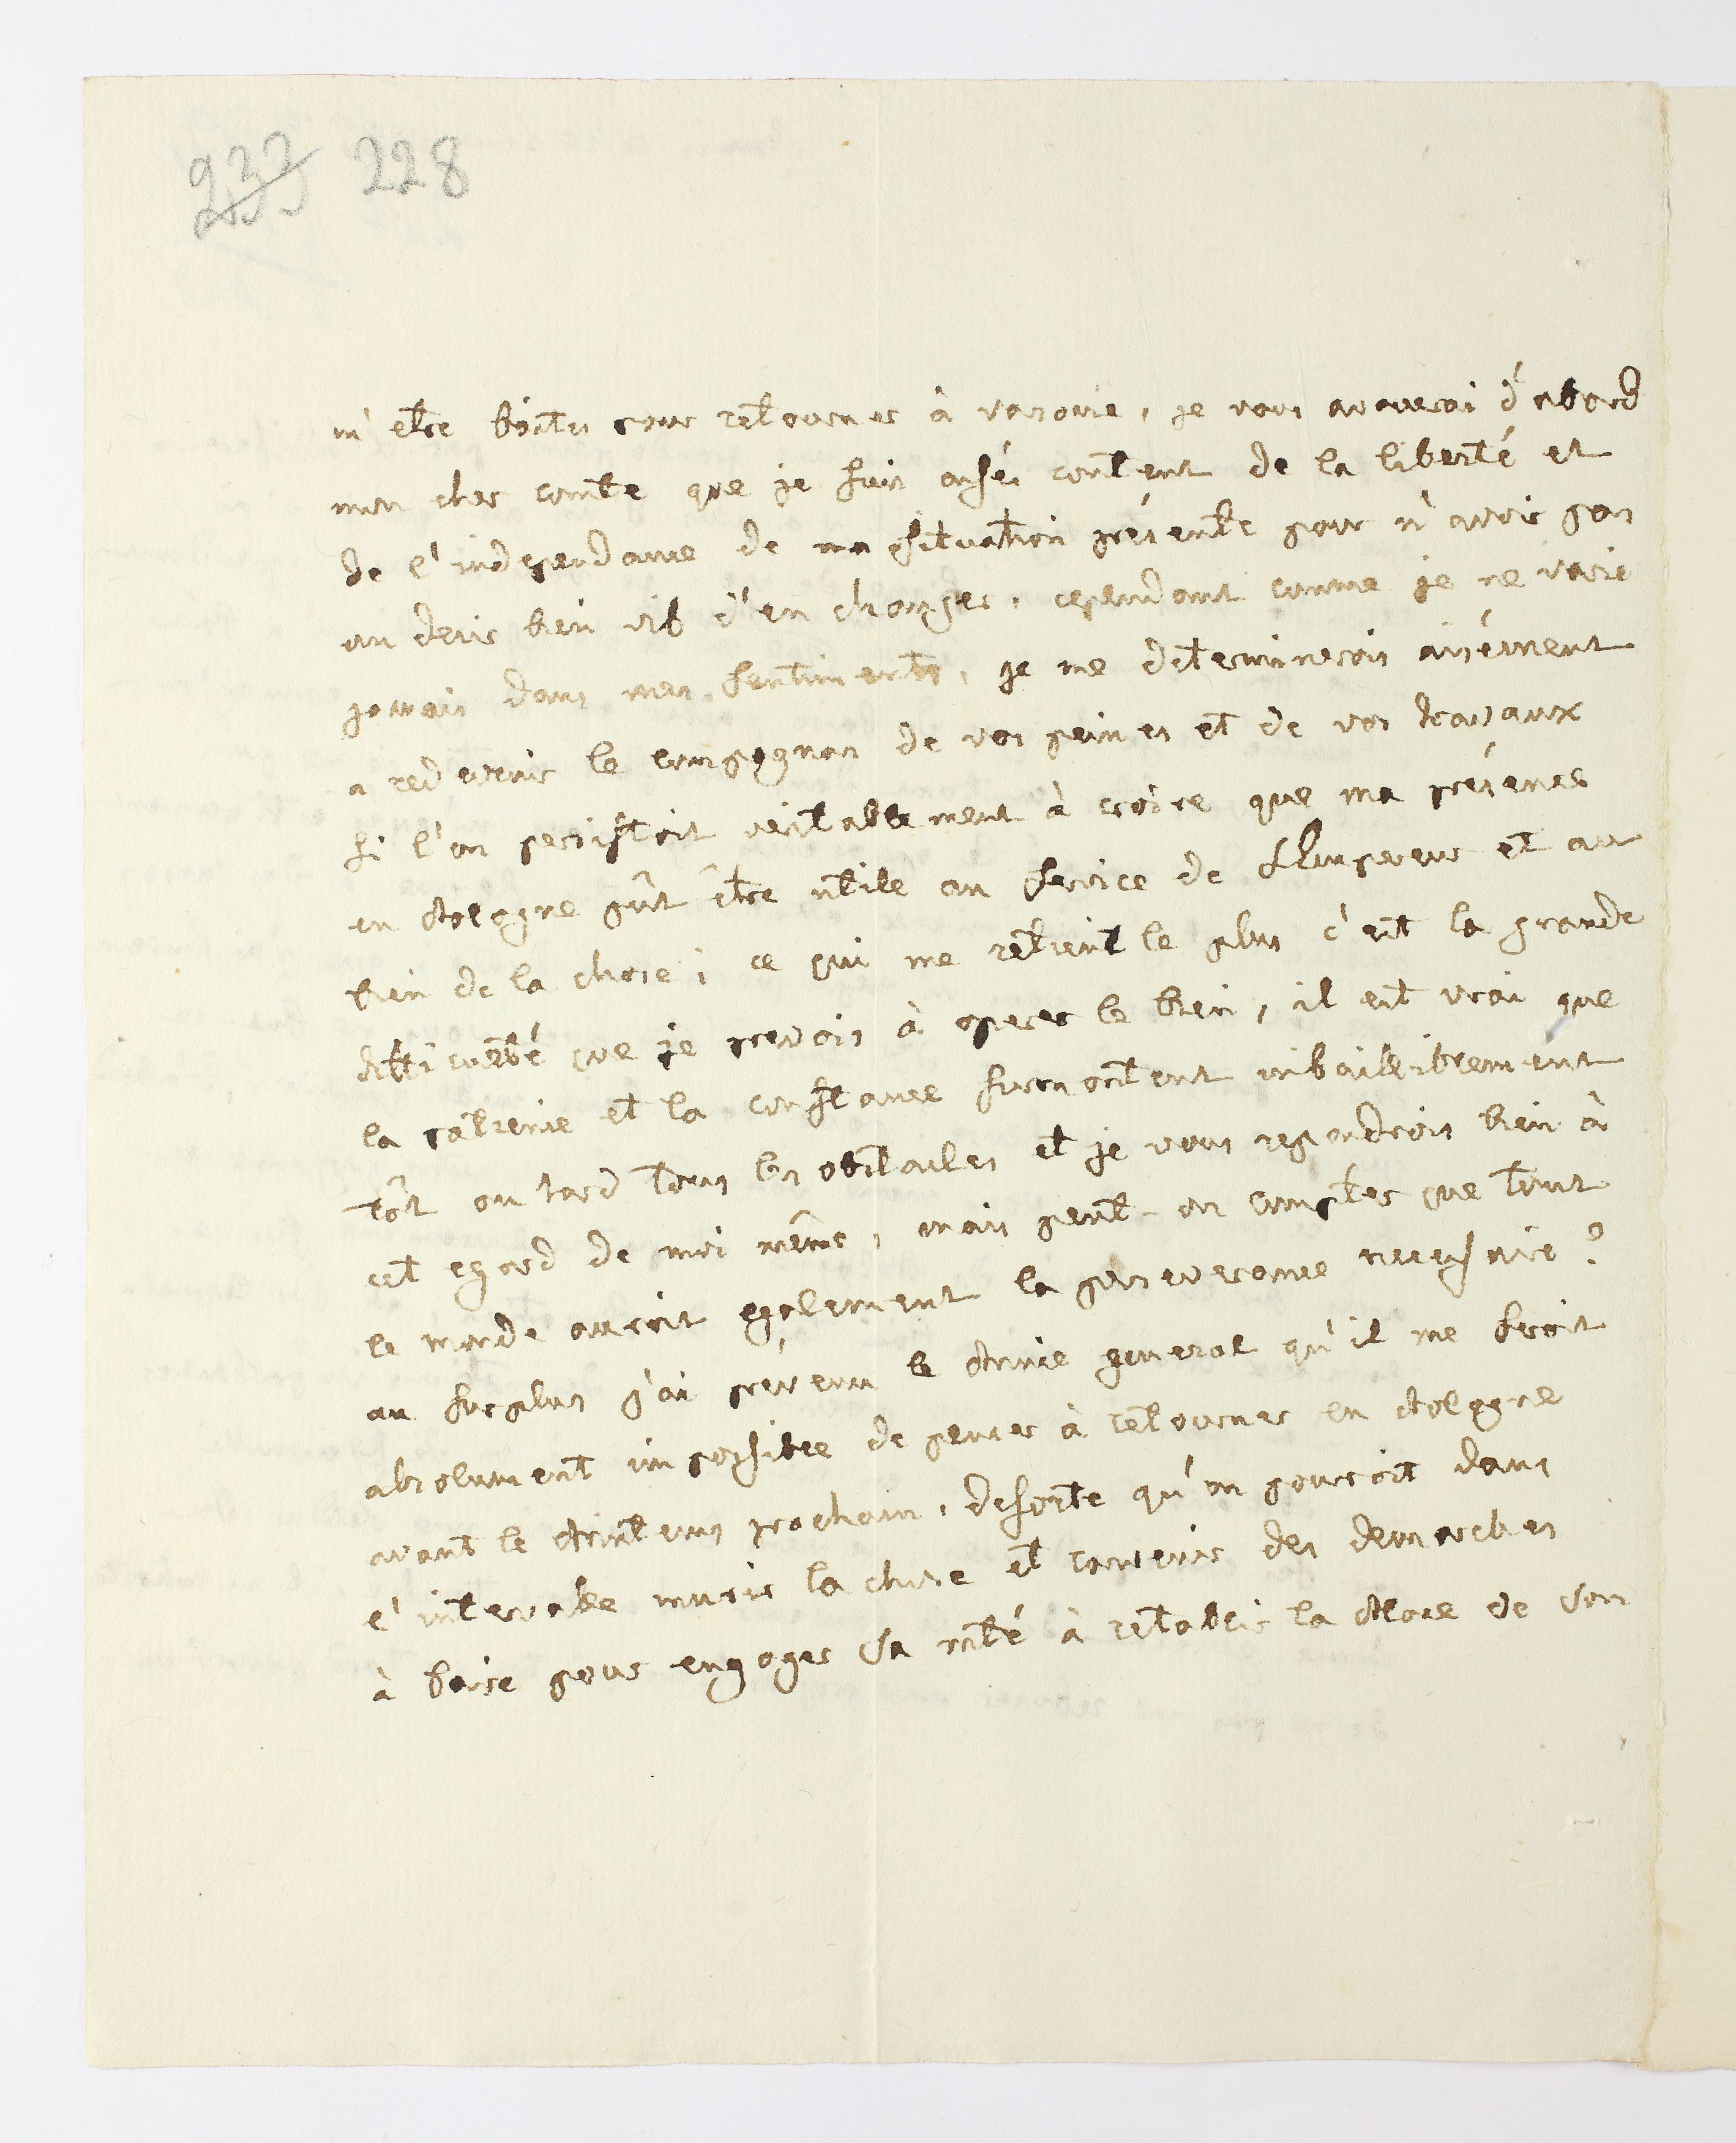 233 228
m'être faites pour retourner à varsovie, je vous avouerai d'abord
mon cher comte que je suis assés content de la liberté et
de l'independance de ma situation présente pour n'avoir pas
un desir bien vif d'en changer, cependant comme je ne varie
jamais dans mes sentiments, je me determinerois aisément
a redevenir le compagnon de vos peines et de vos travaux
si l'on persistoit veritablement à croire que ma présence
en Pologne pût être utile au service de L'Empereur et au
bien de la chose; ce qui me retient le plus c'est la grande
difficulté que je prevois à operer le bien, il est vrai que
la patience et la constance surmontent infailliblement
tôt ou tard tous les obstacles et je vous repondrois bien à
cet egard de moi même, mais peut-on compter que tout
le monde auroit egalement la perseverance necessaire?
au surplus j'ai prévenu le Prince general qu'il me seroit
absolument impossible de penser à retourner en Pologne
avant le Printems prochain, desorte qu'on pourroit dans
l'intervalle murir la chose et convenir des demarches
à faire pour engager Sa mté à retablir la Place de Son